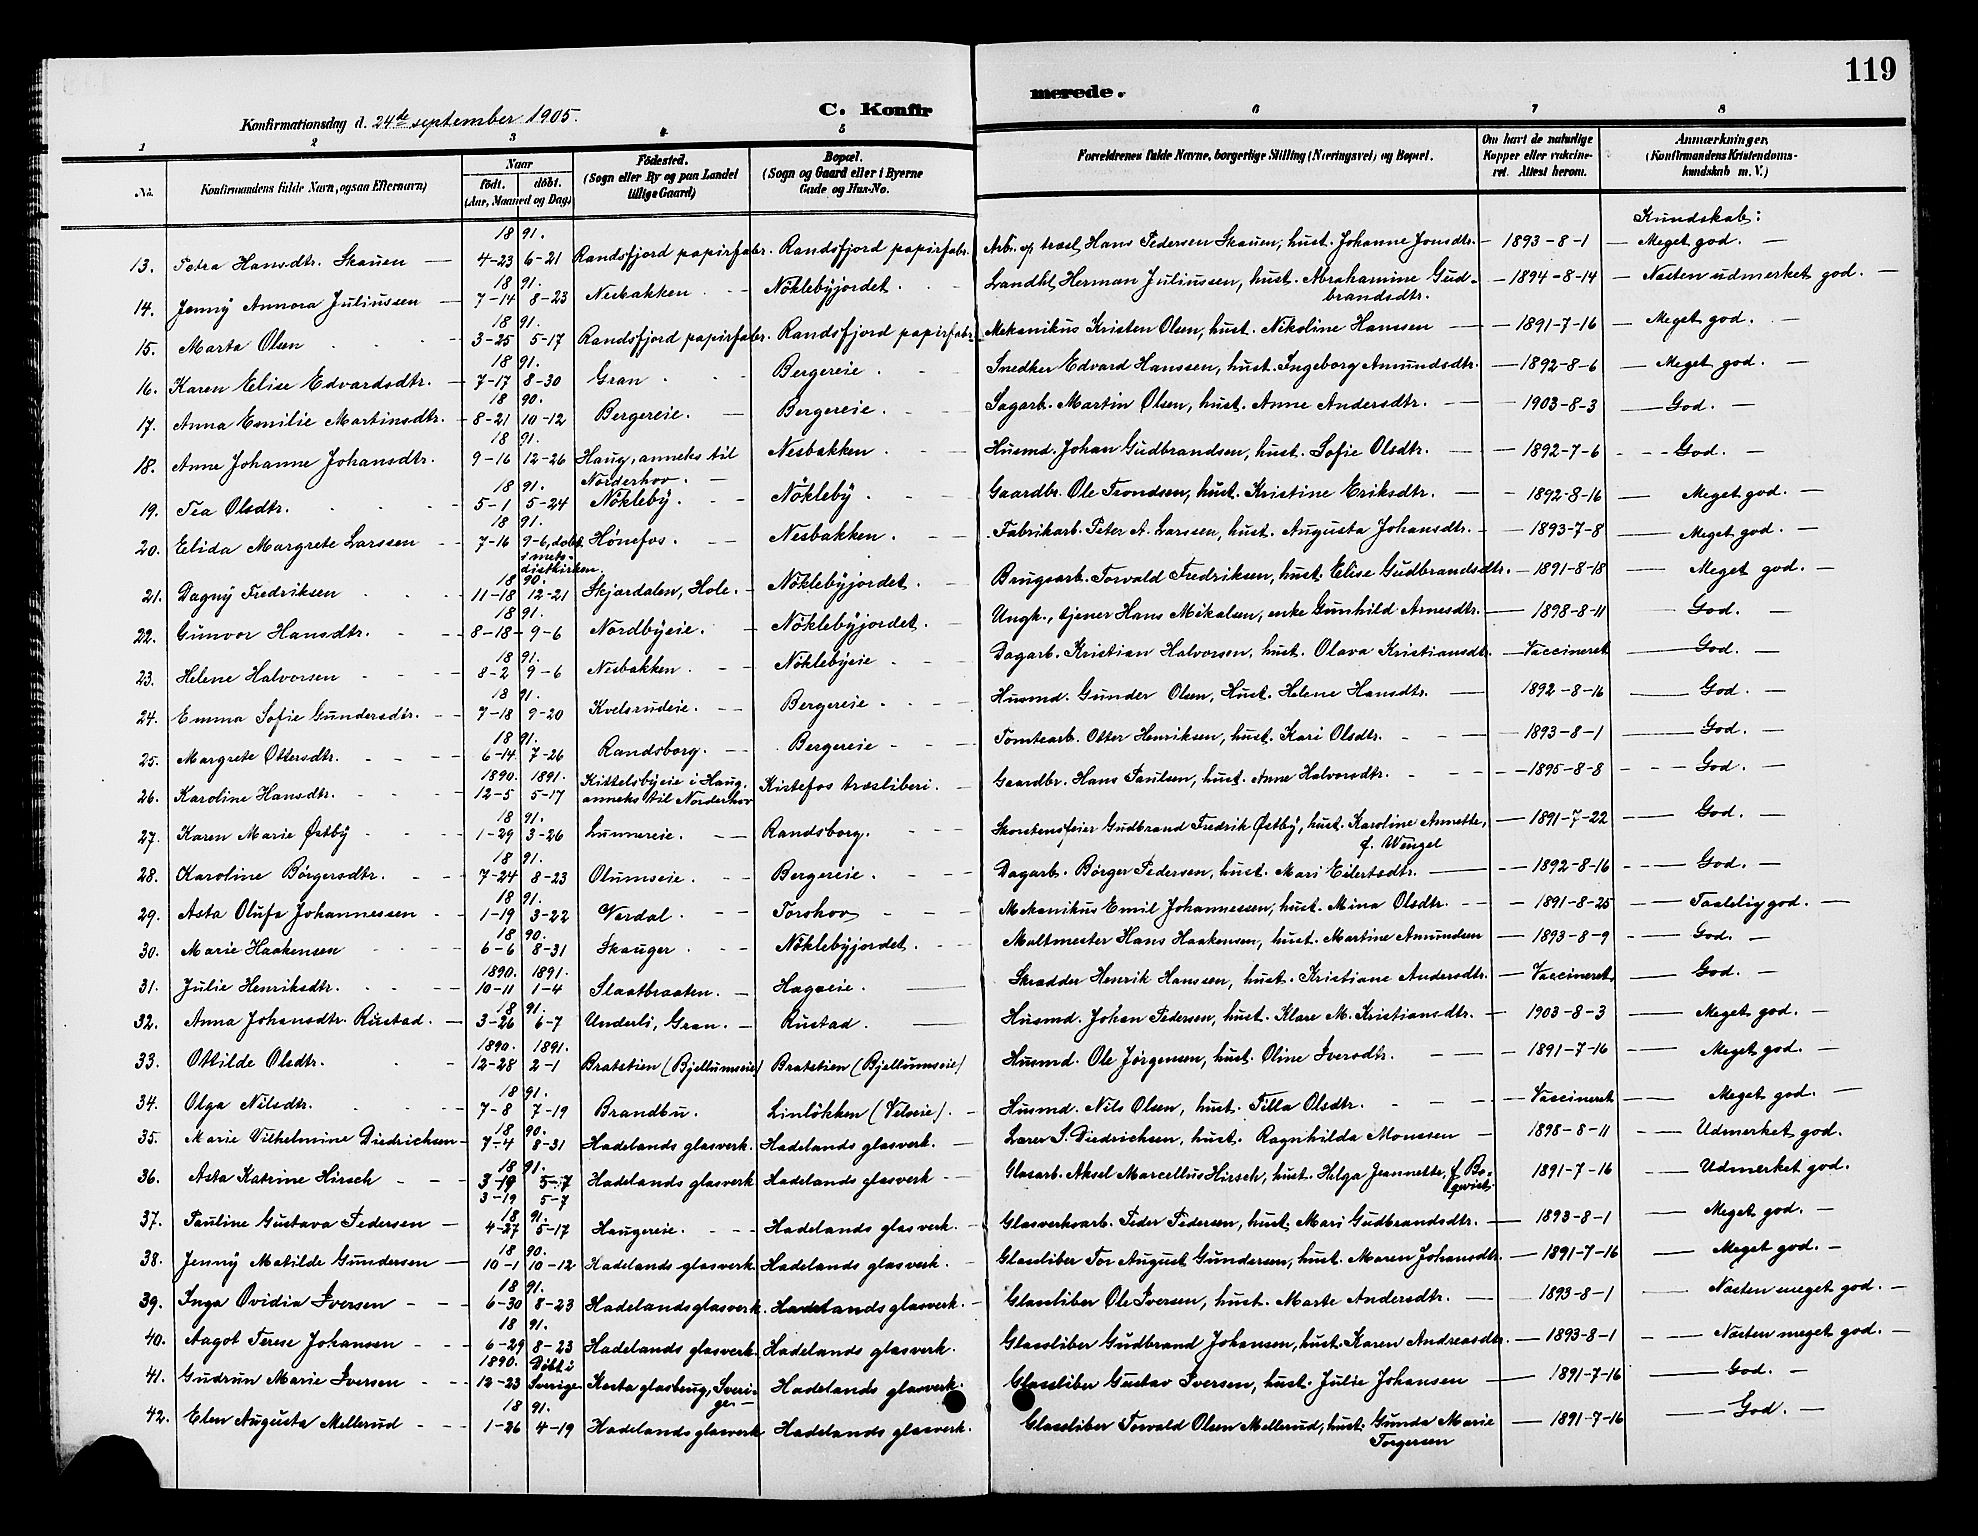 119
Konfirmationsdag d. 24de september 1905. C. Konfirmerede.
1 2 3 4 5 6 7 8
No. Konfirmandens fulde Navn, (ogsaa Efternavn) Naar født. døbt. (Aar, Maaned og Dag) Fødested. (Sogn eller By og paa Landet tillige Gaard) Bopæl. (Sogn og Gaard eller i Byerne Gade og Hus-No. Forældrenes fulde Navne, borgerlige Stilling (Næringsvei) og Bopæl. Om havt de naturlige Kopper eller vaccineret. Attest herom. Anmærkninger, (Konfirmandens Kristendomskundskab m. V.)
Kundskab:
18 91.
13. Petra Hansdtr. Skauen — 4-23 6-21 Randsfjord papirfabr. Randsfjord papirfabr. Arb. v. træsl. Hans Pedersen Skauen, hust. Johanne Jonsdtr. - 1893-8-1 — Meget god. —
18 91.
14. Jenny Annora Juliussen — 7-14 8-23 Nesbakken. Nøklebyjordet. Landhl. Herman Juliussen, hust. Abrahamine Gud-
brandsdtr. — 1894-8-14 — Næsten udmerket god. —
18 91.
15. Marta Olsen 3-25 5-17 Randsfjord papirfabr. Randsfjord papirfabr. Mekanikus Kristen Olsen, hust. Nikoline Hanssen — 1891-7-16 — Meget god. —
18 91.
16. Karen Elise Edvardsdtr. — 7-17 8-30 Gran. Bergereie. Snedker Edvard Hanssen, hust. Ingeborg Amundsdtr. — 1892-8-6 — Meget god. —
18 90.
17. Anna Emilie Martinsdtr. 8-21 10-12 Bergereie. — Bergereie. Sagarb. Martin Olsen, hust. Anne Andersdtr. — 1903-8-3 — God. —
18 91.
18. Anne Johanne Johansdtr. 9-16 12-26 Haug, anneks til
Norderhov. — Nesbakken Husmd. Johan Gudbrandsen, hust. Sofie Olsdtr. — 1892-7-6 — God. —
18 91.
19. Tea Olsdtr. 5-1 5-24 Nøkleby. Nøkleby. Gaardbr. Ole Trondsen, hust. Kristine Eriksdtr. — 1892-8-16 — Meget god. —
18 91.
20. Elida Margrete Larssen 7-16 9-6, døbt
i meto-
distkirken. Hønefos. Nesbakken. Fabrikarb. Peter A. Larssen, hust. Augusta Johansdtr. — 1893-7-8 — Meget god. —
18 90.
21. Dagny Fredriksen 11-18 12-21 Skjærdalen, Hole. — Nøklebyjordet. Brugsarb. Torvald Fredriksen, hust. Elise Gudbrandsdtr. — 1891-8-18 — Meget god. —
18 91.
22. Gunvor Hansdtr. 8-18 9-6 Nordbyeie. Nøklebyjordet. Ungk., tjener Hans Mikalsen, enke Gunhild Arnesdtr. — 1898-8-11 — God. —
18 91.
23. Helene Halvorsen 8-2 9-6 Nesbakken. Nøklebyeie Dagarb. Kristian Halvorsen, hust. Olava Kristiansdtr. — Vaccineret — God. —
18 91.
24. Emma Sofie Gundersdtr. 7-18 9-20 Kvelsrudeie. Bergereie. Husmd. Gunder Olsen, Hust. Helene Hansdtr. — 1892-8-16 — God. —
18 91.
25. Margrete Ottersdtr. 6-14 7-26 Randsborg. Bergereie Tomtearb. Otter Henriksen, hust. Kari Olsdtr. 1893-8-1 — God. —
1890. 1891.
26. Karoline Hansdtr. 12-5 5-17 Kittelsbyeie i Haug,
anneks til Norderhov Kistefos træsliberi. Gaardbr. Hans Paulsen, hust. Anne Halvorsdtr. 1895-8-8 — God. —
18 91.
27. Karen Marie Østby 1-29 3-26 Lunnereie. Randsborg. Skorstensfeier Gudbrand Fredrik Østby, hust. Karoline Annette,
f. Wengel — 1891-7-22 — God. —
18 91.
28. Karoline Børgersdtr. 7-24 8-23 Olumseie. Bergereie. Dagarb. Børger Pedersen, hust. Mari Eilertsdtr. — 1892-8-16 — God. —
18 91.
29. Asta Olufa Johannessen 1-19 3-22 Verdal. Torohov Mekanikus Emil Johannessen, hust. Mina Olsdtr. 1891-8-25 — Taalelig god. —
18 90.
30. Marie Haakensen 6-6 8-31 Skauger. Nøklebyjordet. Maltmester Hans Haakensen, hust. Martine Amundsen — 1893-8-9 — God. —
1890. 1891.
31. Julie Henriksdtr. 10-11 1-4 Slaatbraaten. Hagaeie. Skrædder Henrik Hanssen, hust. Kristiane Andersdtr. — Vaccineret — God. —
18 91.
32. Anna Johansdtr. Rustad. — 3-26 6-7 Underli, Gran. — Rustad. Husmd. Johan Pedersen, hust. Klare M. Kristiansdtr. — 1903-8-3 — Meget god. —
1890. 1891.
33. Ottilde Olsdtr. 12-28 2-1 Bratstien (Bjellumseie) Bratstien (Bjellumseie) Husmd. Ole Jørgensen, hust. Oline Iversdtr. — 1891-7-16 — Meget god. —
18 91.
34. Olga Nilsdtr. 7-8 7-19 Brandbu. Linløkken (Velseie). Husmd. Nils Olsen, hust. Tilla Olsdtr. — Vaccineret — Meget god. —
18 90.
35. Marie Vilhelmine Diedrichsen 7-4 8-31 Hadelands glasverk. Hadelands glasverk. Lærer S. Diedrichsen, hust. Ragnhilda Monssen — 1898-8-11 — Udmerket god.
18 91.
36. Asta Katrine Hirsch 3-19 5-7 Hadelands glasverk Hadelands glasverk Glasarb. Aksel Marcellus Hirsch, hust. Helga Jeannette, f. Bo-
qvist. 1891-7-16 — Udmerket god.
3-19 5-7
18 91.
37. Pauline Gustava Pedersen — 4-27 5-17 Haugereie. Hadelands glasverk. Glasverksarb. Peder Pedersen, hust. Mari Gudbrandsdtr. — 1893-8-1 — Meget god. —
18 90.
38. Jenny Matilde Gundersen — 10-1 10-12 Hadelands glasverk Hadelands glasverk. Glassliber Tor August Gundersen, hust. Maren Johansdtr. — 1891-7-16 — Meget god. —
18 91.
39. Inga Ovidia Iversen 6-30 8-23 Hadelands glasverk. Hadelands glasverk. Glassliber Ole Iversen, hust. Marte Andersdtr. — 1893-8-1 — Næsten meget god. —
18 91.
40. Aagot Terese Johansen 6-29 8-23 Hadelands glasverk. Hadelands glasverk. Glassliber Gudbrand Johansen, hust. Karen Andreasdtr. — 1893-8-1 — Næsten meget god. —
1890. Døbt i
41. Gudrun Marie Iversen 12-23 Sverige Kosta glasbrug, Sveri-
ge. — Hadelands glasverk. Glassliber Gustav Iversen, hust. Julie Johansen — 1891-7-16 — God. —
18 91.
42. Elen Augusta Mellerud 1-26 4-19 Hadelands glasverk Hadelands glasverk. Glassliber Torvald Olsen Mellerud, hust. Gunda Marie
Torgersen — 1891-7-16 — God. —